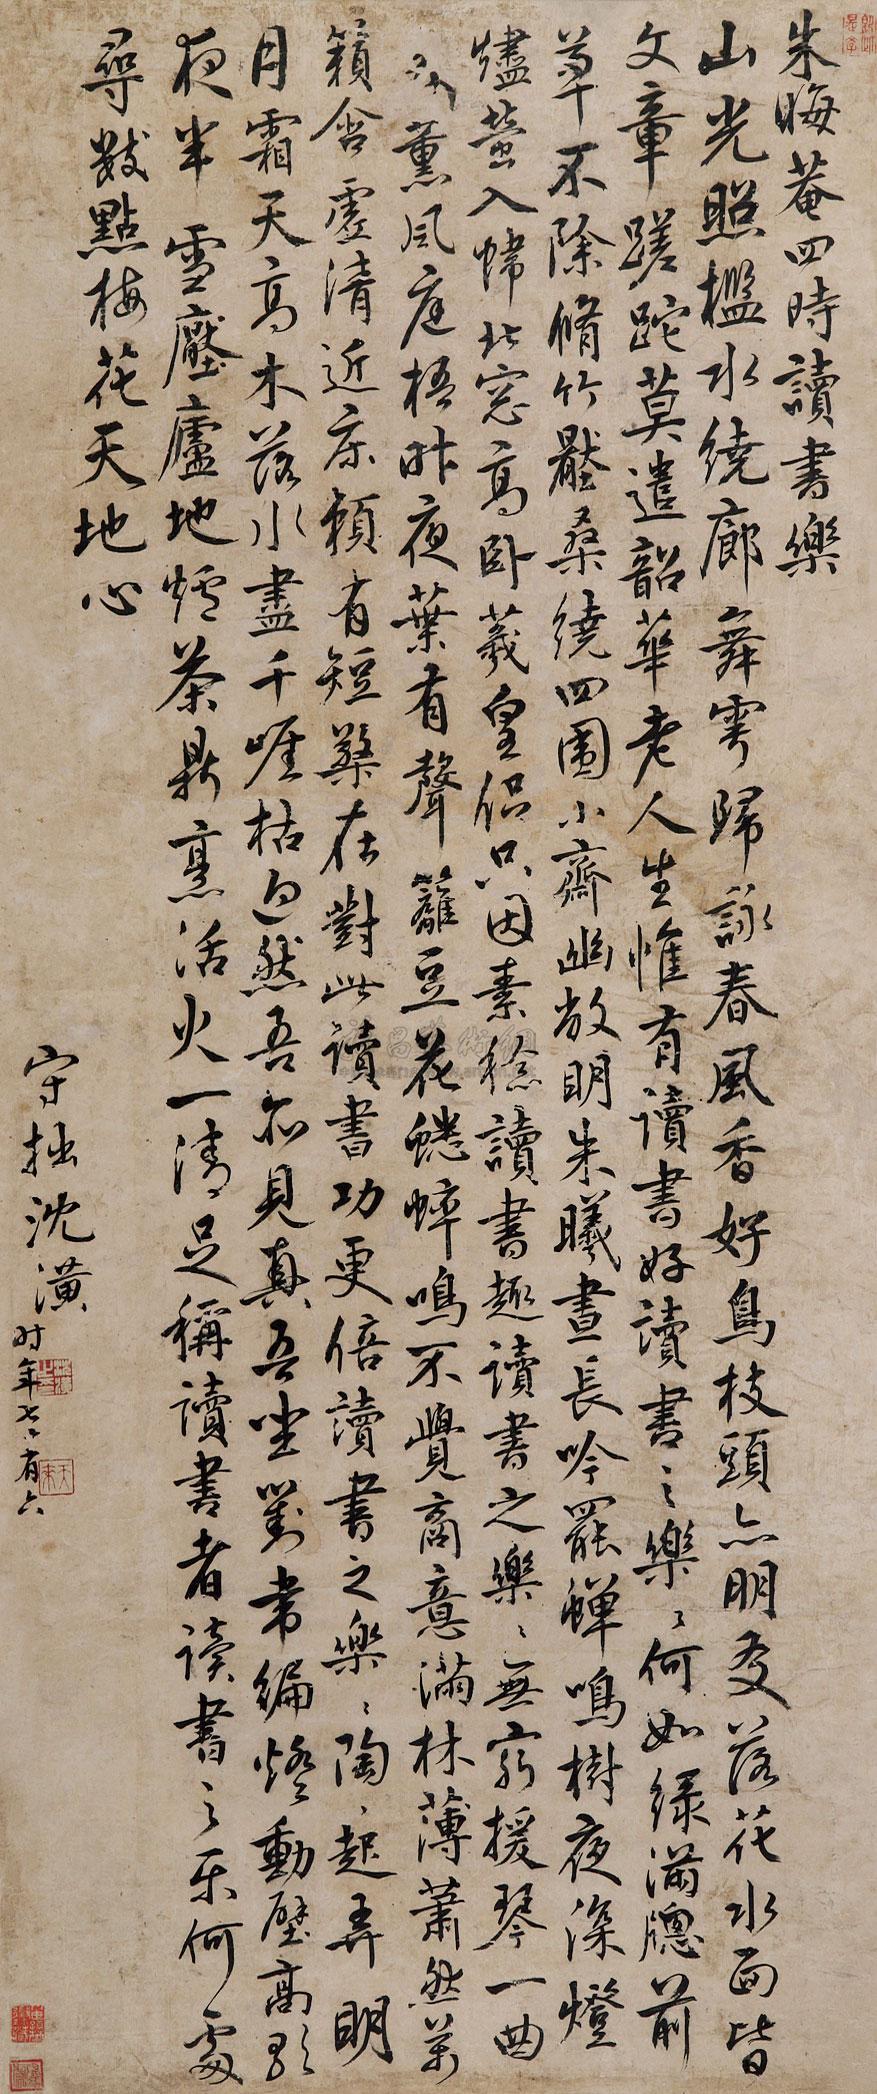 朱晦菴四時讀書樂
山光照檻水繞廊舞雩歸詠春風香好鳥枝頭亦朋友落花水面皆
文章蹉跎莫遣韶華老人生惟有讀書好讀書之樂〻何如綠滿牕前
草不除脩竹壓桑繞四圍小齋幽敞明朱曦晝長吟罷蟬鳴樹夜深燈
燼螢入幃北窓高卧羲皇侣只因素稔讀書趣讀書之樂〻無窮援琴一曲
來薰風庭梧昨夜葉有聲籬豆花蟋蟀鳴不覺商意滿林薄蕭然萬
籟含虛清近床賴有短檠在對此讀書功更倍讀書之樂〻陶〻起弄明
月霜天高木落水盡千崖枯迥然吾亦見真吾坐對韋編燈動壁高歌
夜半雪壓廬地爐茶鼎烹活火一清足稱讀書者讀書之樂何處
尋數點梅花天地心
守拙沈潢
时年七〻有六